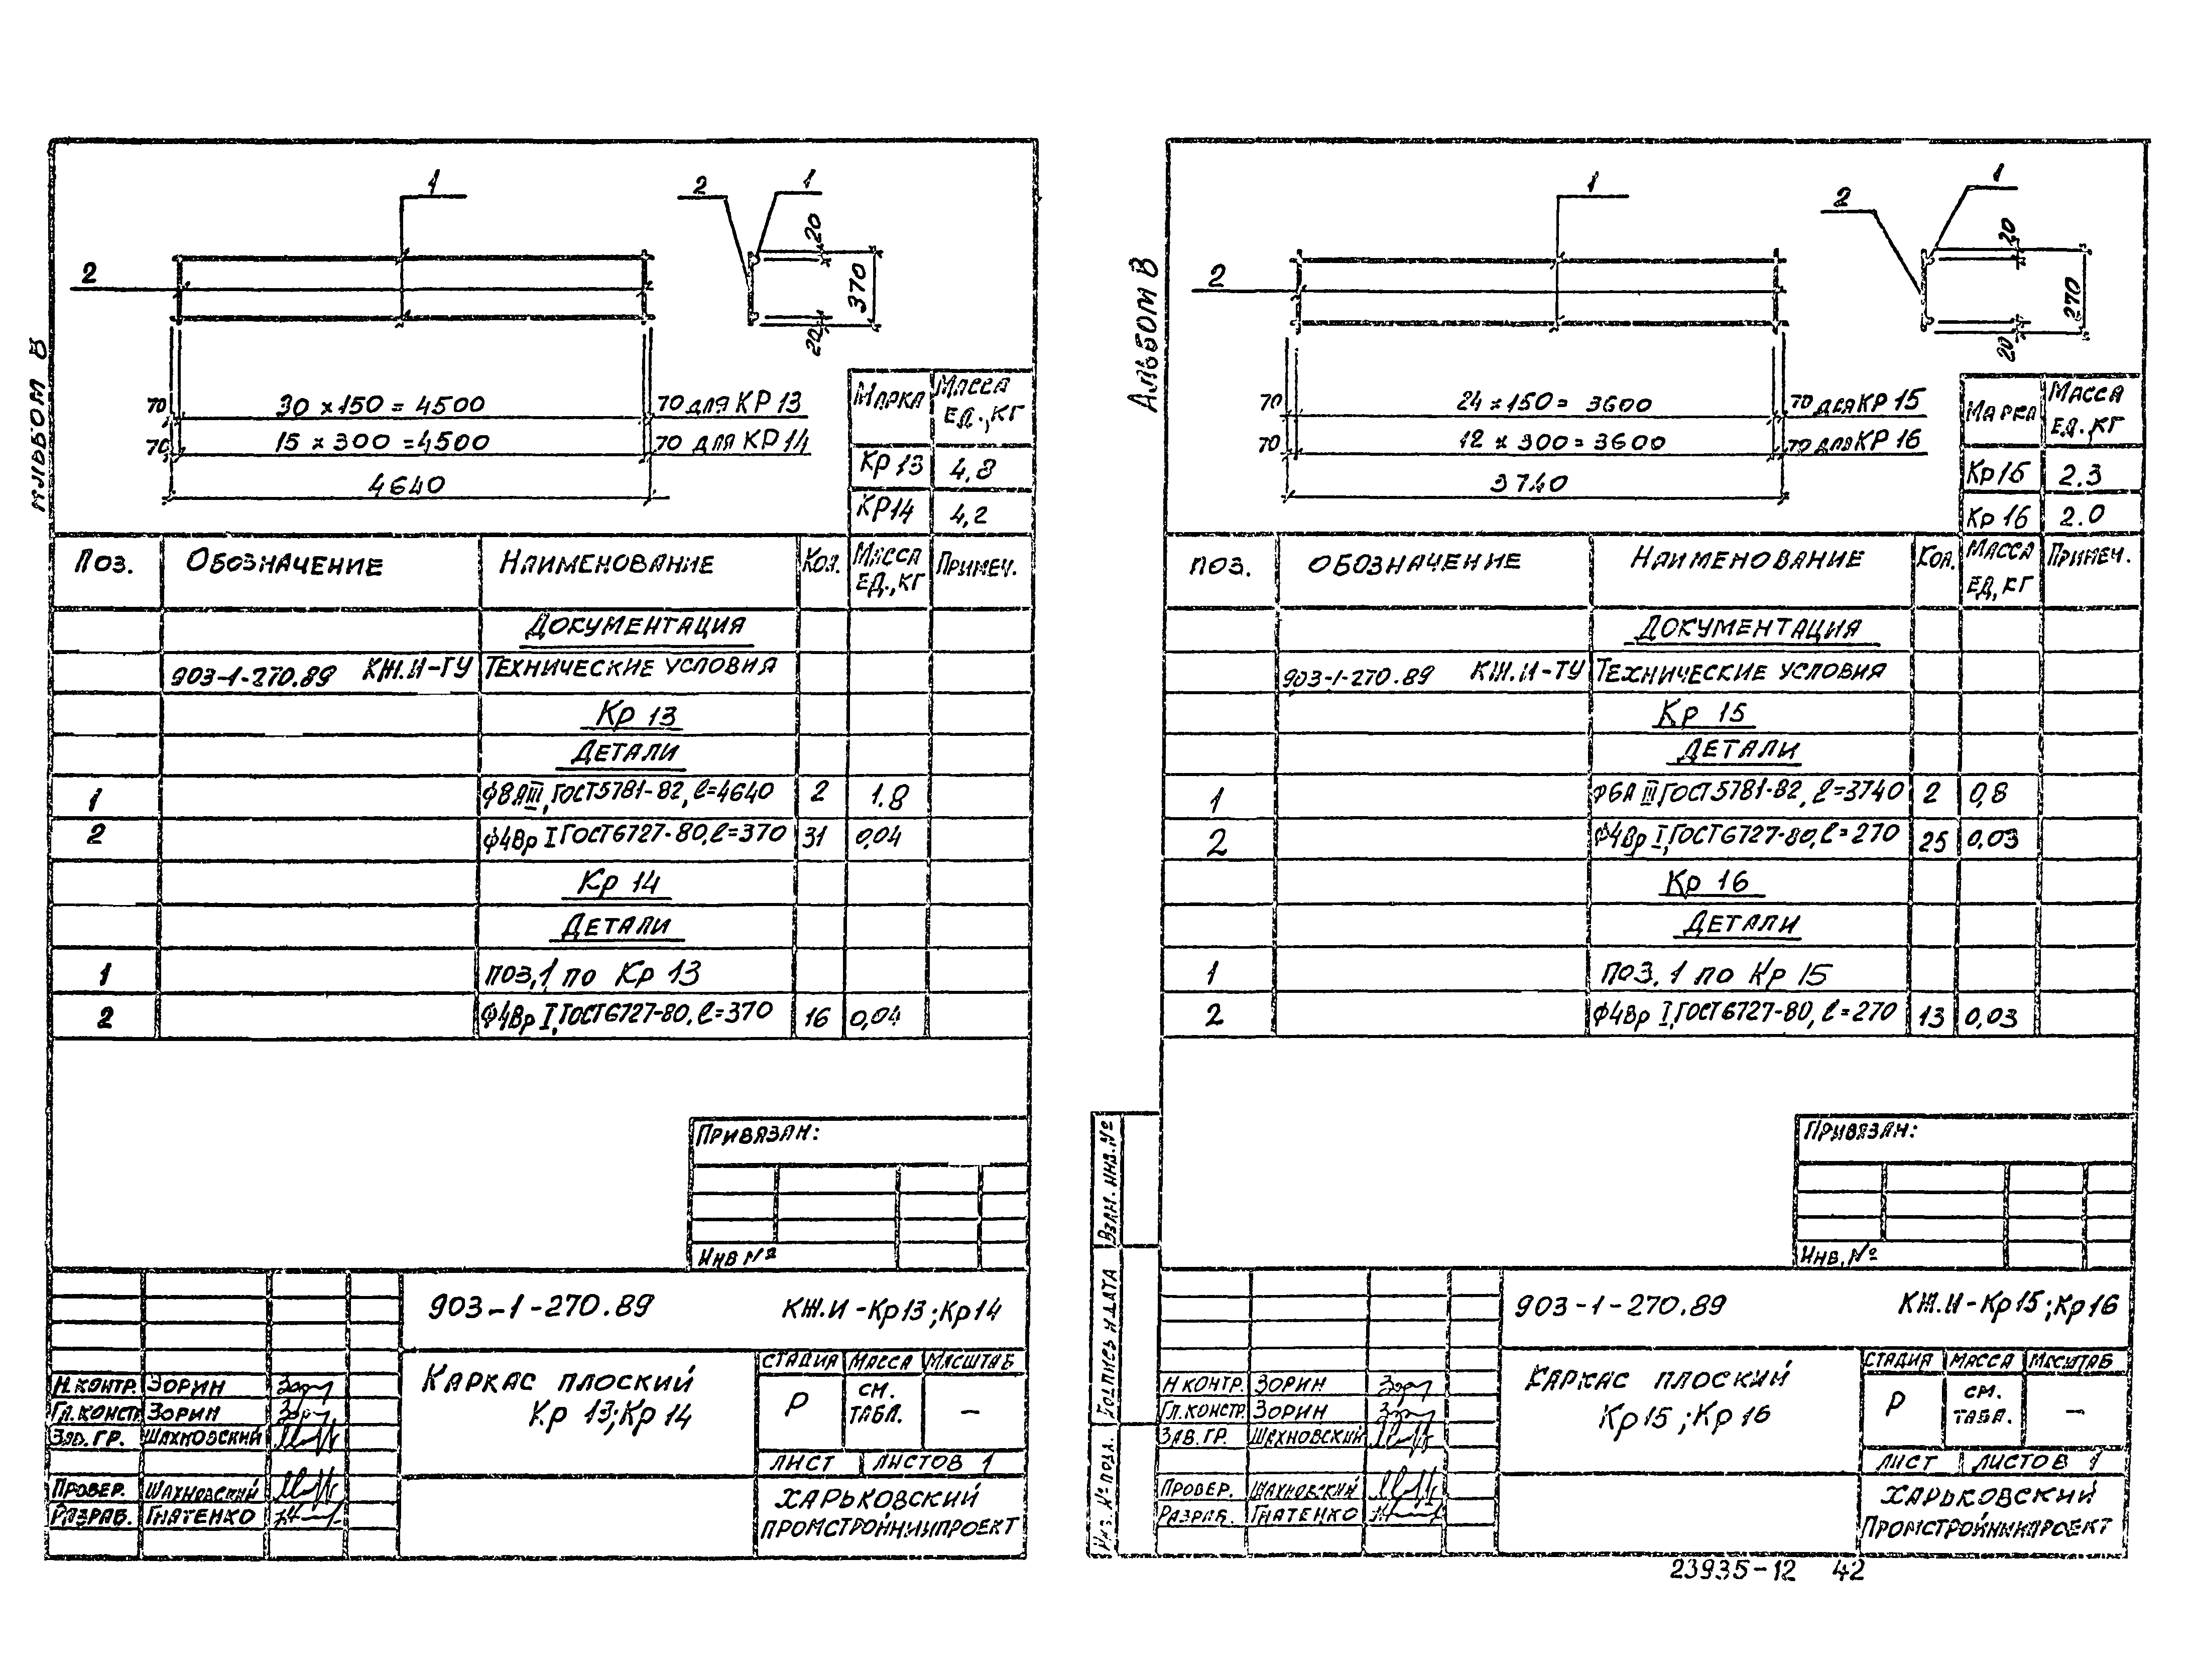 Альбом В
1
2
2
1
20
370
20
70
30 × 150 = 4500
70 для КР 13
70
15 × 300 = 4500
70 для КР 14
4640
Марка Масса ед., кг
Кр 13 4,8
КР 14 4,2
Поз. Обозначение Наименование Кол. Масса ед., кг Примеч.
Документация
903-1-270.89 КЖ.И-ТУ Технические условия
Кр 13
Детали
1 ф8АIII, ГОСТ 5781-82, ℓ=4640 2 1.8
2 ф4Вр I ГОСТ 6727-80, ℓ=370 31 0,04
Кр 14
Детали
1 поз. 1 по Кр 13
2 ф4Вр I, ГОСТ 6727-80, ℓ=370 16 0,04
Привязан:
Инв №
903-1-270.89 КЖ.И-Кр13;Кр14
Каркас плоский
Кр 13; Кр 14
Стадия Масса Масштаб
Р см. табл. —
Лист Листов 1
Харьковский
Промстройниипроект
Н.контр. Зорин
Гл.констр. Зорин
Зав. гр. Шахновский
Провер. Шахновский
Разраб. Гнатенко
Альбом В
1
2
2
1
20
270
20
70
24 × 150 = 3600
70 для КР 15
70
12 × 300 = 3600
70 для КР 16
3740
Марка Масса ед., кг
Кр 15 2.3
Кр 16 2.0
поз. Обозначение Наименование Кол. Масса ед, кг Примеч.
Документация
903-1-270.89 КЖ.И-ТУ Технические условия
Кр 15
Детали
1 ф6А III ГОСТ 5781-82, ℓ=3740 2 0,8
2 ф4Вр I, ГОСТ 6727-80, ℓ=270 25 0,03
Кр 16
Детали
1 поз. 1 по Кр 15
2 ф4Вр I, ГОСТ 6727-80, ℓ=270 13 0,03
Привязан:
Инв. №
Взам. инв. №
Подпись и дата
Инв. № подл.
903-1-270.89 КЖ.И-Кр15;Кр16
Каркас плоский
Кр 15; Кр 16
Стадия Масса Масштаб
Р см. табл. —
Лист Листов 1
Харьковский
Промстройниипроект
Н контр. Зорин
Гл.констр. Зорин
Зав. гр. Шахновский
Провер. Шахновский
Разраб. Гнатенко
23935-12 42